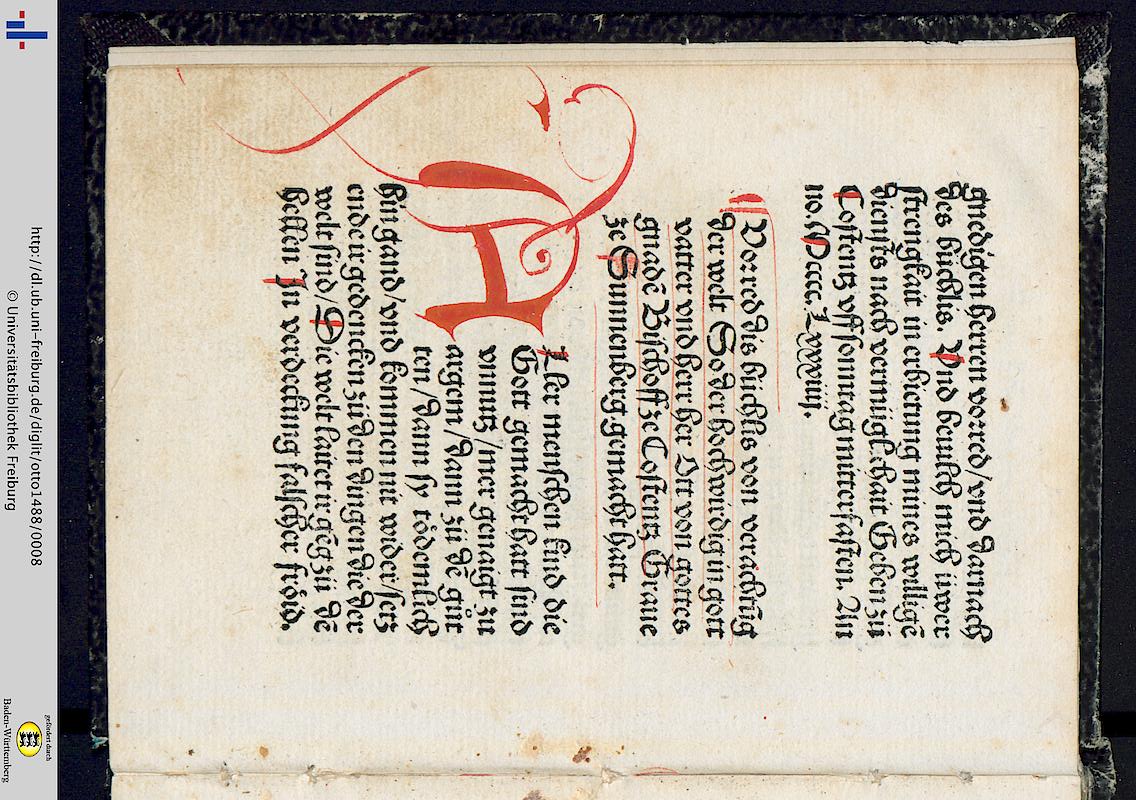 gnedigen herren vorred/vnd darnach
des büchlis. Vnd beuilch mich üwer
strengkait in erbietung mines willigē
diensts nach vermüglichait Geben zů
Costentz vff sonntag mitterfasten. An
no. Mcccc. Lxxxiiij.
Vorred dis büchlis von verachtūg
der welt So der hochwirdig in gott
vatter vnd herr her Ott von gottes
gnadē Bischoff ze Costentz Graue
ze Sunnenberg.gemacht hatt.
ALler menschen kind die
Gott gemacht hatt sind
vnnutz/mer genaigt zu
argem/dann zů dē gůt
ten/dann sy tödemlich
hin gand/vnd kommen nit wider/setz
ende ir gedencken zů den dingen die der
welt sind/Die welt laitet ir gēg zů dē
hellen In verdeckung falscher fröid.
http://dl.ub.uni-freiburg.de/diglit/otto1488/0008
© Universitätsbibliothek Freiburg
gefördert durch
Baden-Württemberg